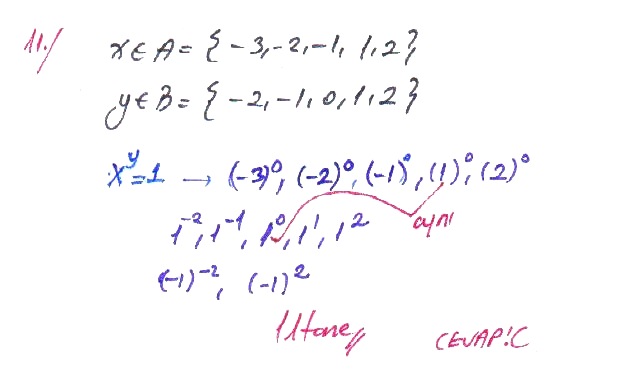 11./ x ∈ A = {-3, -2, -1, 1, 2}
y ∈ B = {-2, -1, 0, 1, 2}
x^y = 1 → (-3)^0, (-2)^0, (-1)^0, (1)^0, (2)^0
1^-2, 1^-1, 1^0, 1^1, 1^2 aynı
(-1)^-2, (-1)^2
11 tane
CEVAP: C